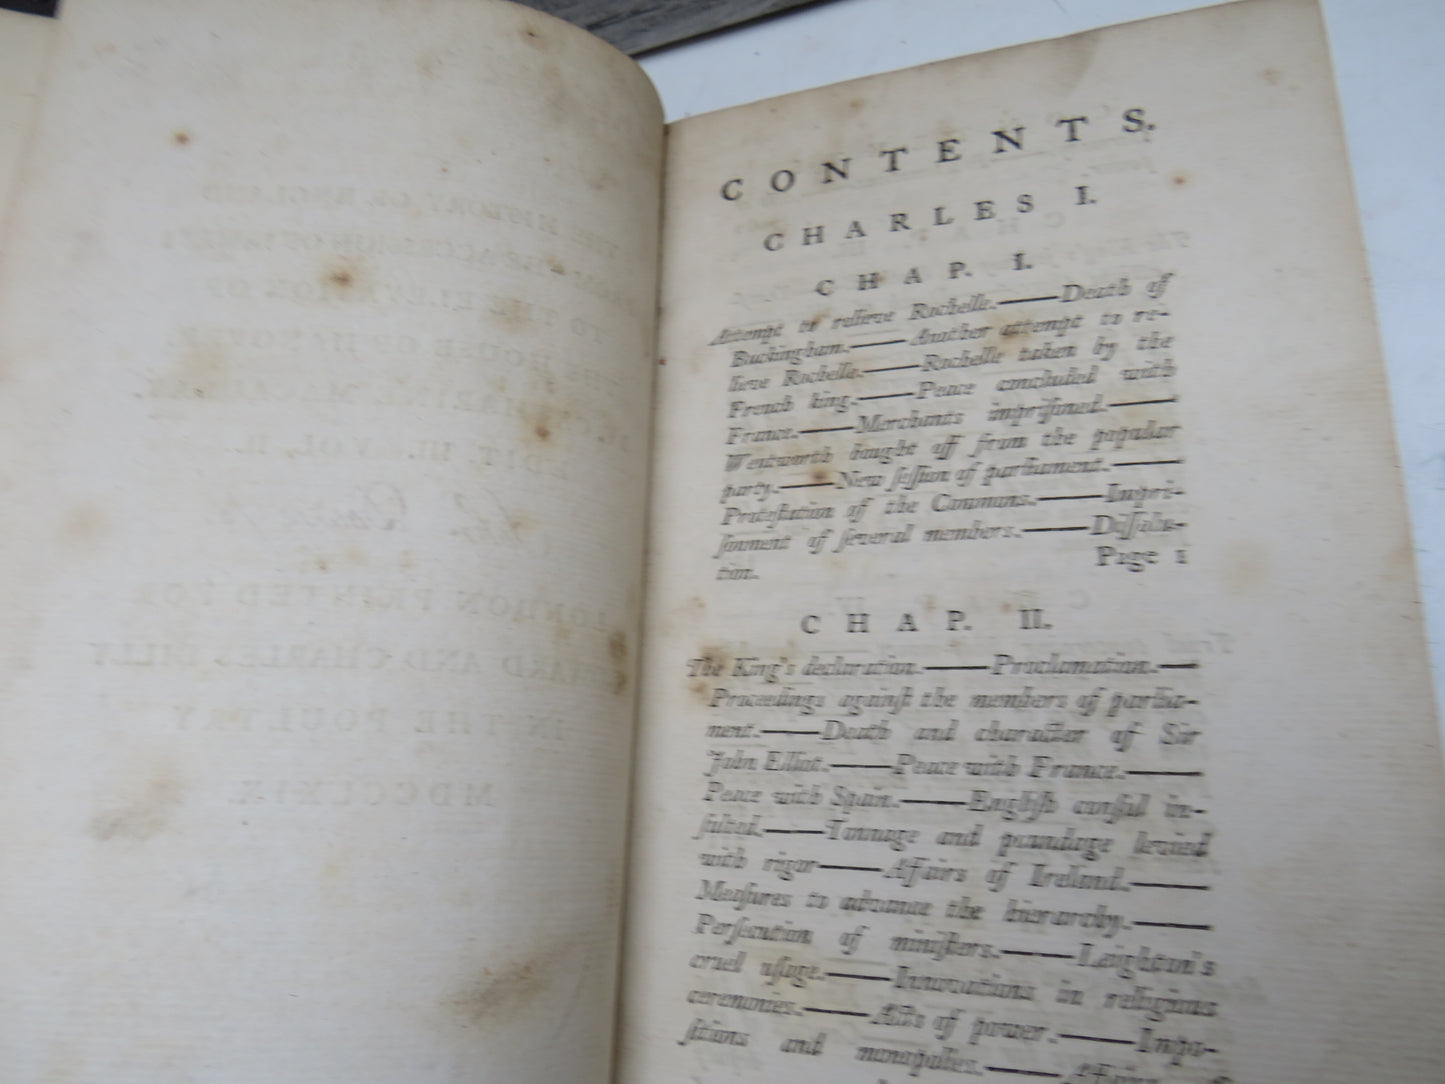 CONTENTS.
CHARLES I.
CHAP. I.
Attempt to relieve Rochelle.——Death of
Buckingham.——Another attempt to re-
lieve Rochelle.——Rochelle taken by the
French king.——Peace concluded with
France.——Merchants impriſoned.——
Wentworth bought off from the popular
party.——New ſeſſion of parliament.——
Proteſtation of the Commons.——Impri-
ſonment of ſeveral members.——Diſſolu-
tion.
Page 1
CHAP. II.
The King's declaration.——Proclamation.—
Proceedings againſt the members of parlia-
ment.——Death and character of Sir
John Elliot.——Peace with France.——
Peace with Spain.——Engliſh conſul in-
ſulted.——Tonnage and poundage levied
with rigor——Affairs of Ireland.——
Meaſures to advance the hierarchy.——
Perſecution of miniſters.——Leighton's
cruel uſage.——Innovations in religious
ceremonies.——Acts of power.——Impo-
ſitions and monopolies.——Affairs of